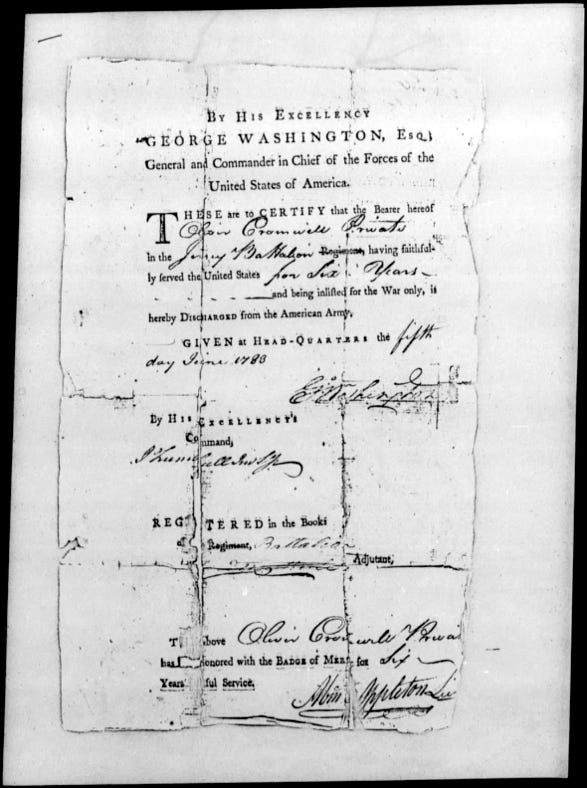 By His Excellency
GEORGE WASHINGTON, Esq;
General and Commander in Chief of the Forces of the
United States of America.
THESE are to CERTIFY that the Bearer hereof
Oliver Cromwell Private
in the Jersey Battalion Regiment, having faithful-
ly served the United States for Six Years
and being inlisted for the War only, is
hereby Discharged from the American Army.
GIVEN at Head-Quarters the fifth
day June 1783
G Washington
By His Excellency's
Command,
J Trumbull Jun
REG TERED in the Books
of Regiment, Battalion
Adjutant,
T bove Oliver Cromwell Priva
has onored with the Badge of Merit for Six
Years ful Service.
Appleton